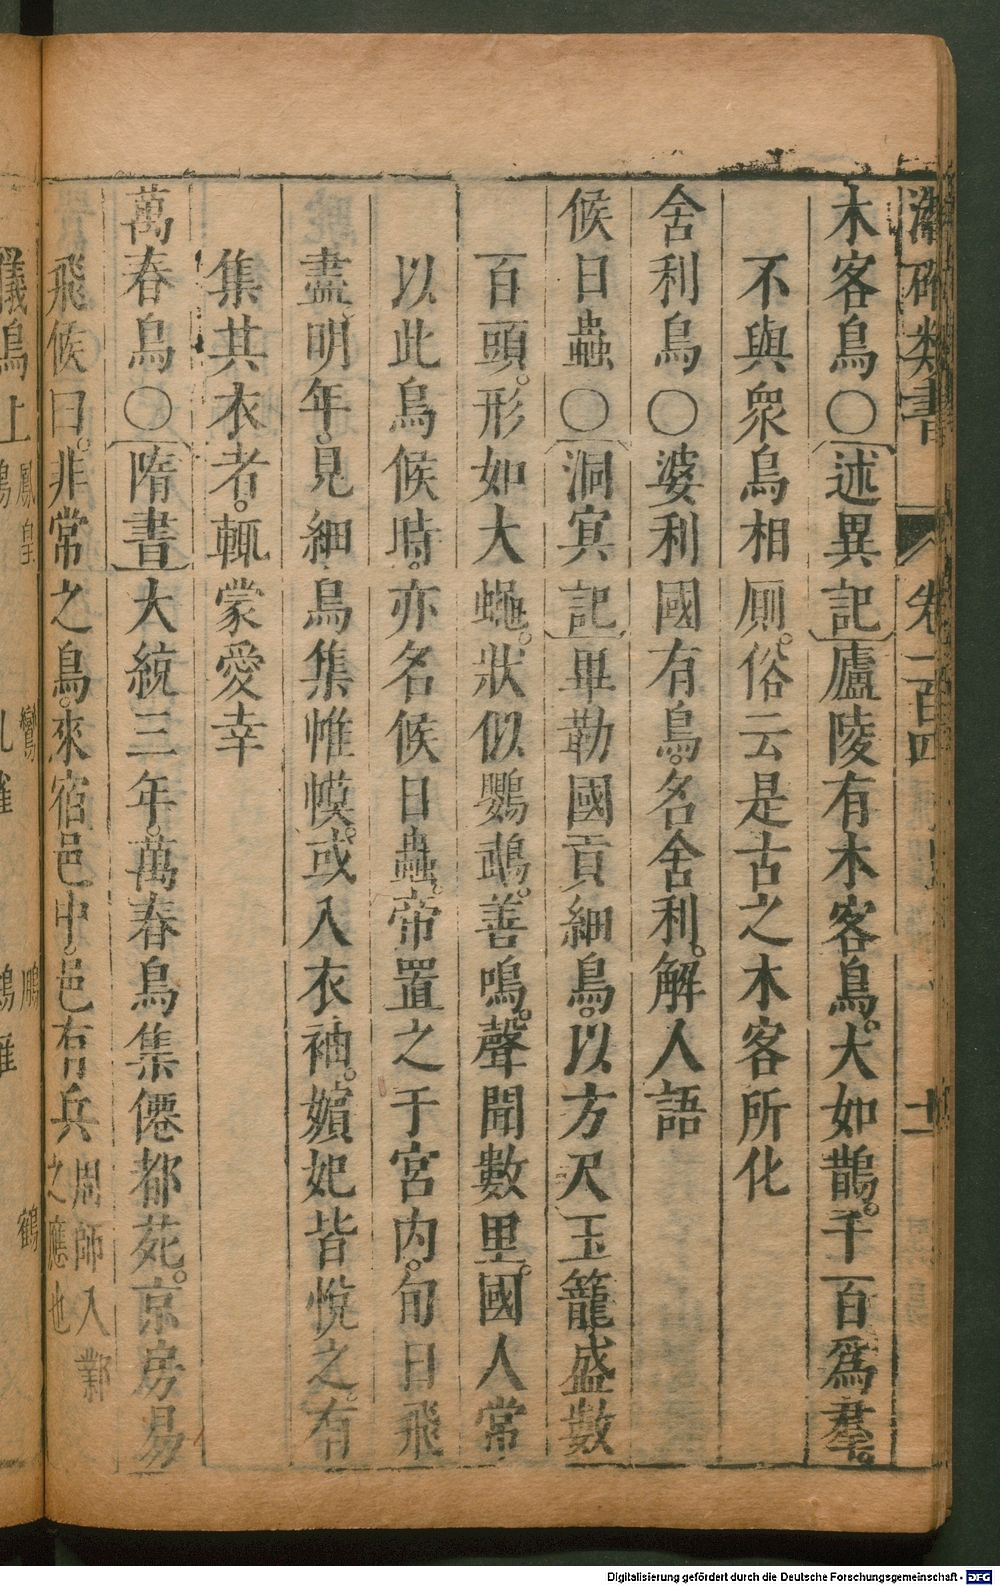 類書 卷一百四
木客鳥〇〔述異記〕廬陵有木客鳥。大如鵲。千百爲羣。
不與衆鳥相厠。俗云是古之木客所化
舍利鳥〇婆利國有鳥。名舍利。解人語
候日蟲〇〔洞冥記〕畢勒國貢細鳥。以方尺玉籠盛數
百頭。形如大蠅。狀似鸚鵡。善鳴。聲聞數里。國人常
以此鳥候時。亦名候日蟲。帝置之于宮内。旬日飛
盡。明年。見細鳥集帷幙。或入衣袖。嬪妃皆悅之。有
集其衣者。輒蒙愛幸
萬春鳥〇〔隋書〕大統三年。萬春鳥集僊都苑。京房易
飛候曰。非常之鳥。來宿邑中。邑有兵周師入鄴之應也
儀鳥上
鳳皇
鸞
鵬
鶴
Digitalisierung gefördert durch die Deutsche Forschungsgemeinschaft - DFG